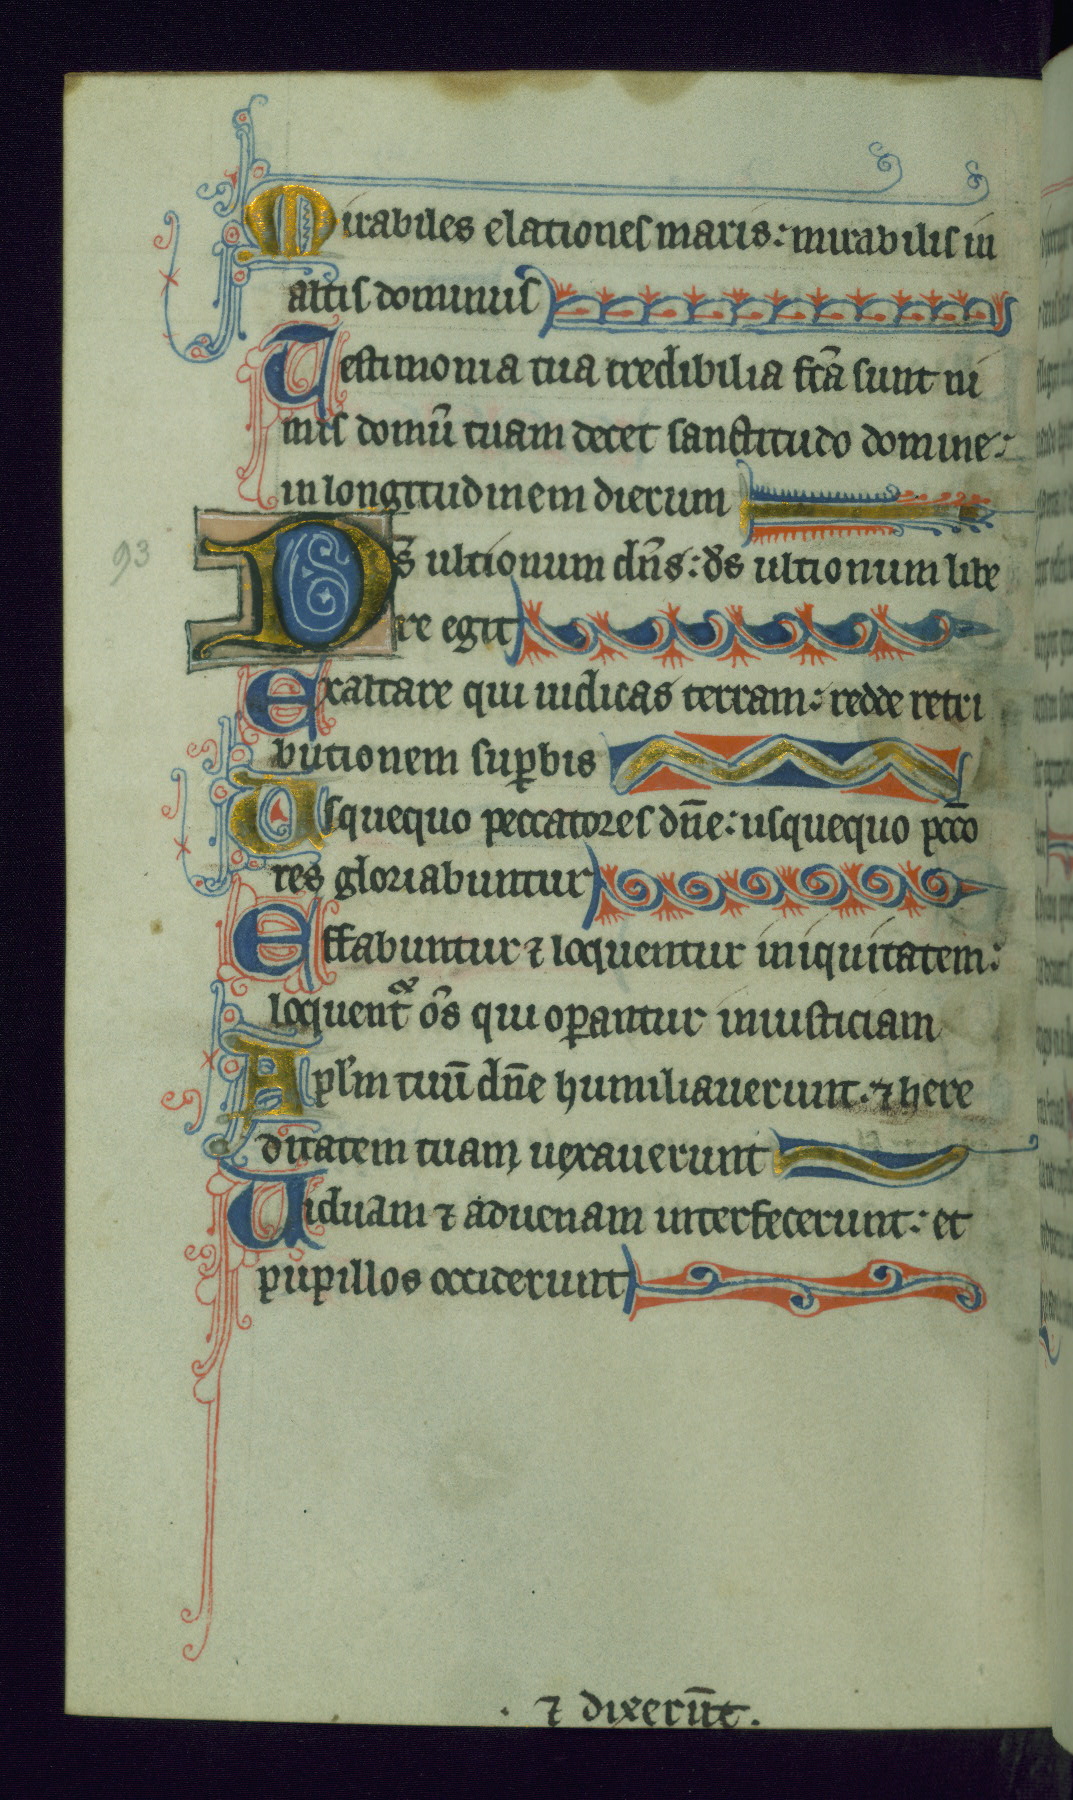 Mirabiles elationes maris: mirabilis in
altis dominus
Testimonia tua credibilia fc̄a sunt ni
mis domū tuam decet sanctitudo domine:
in longitudinem dierum
93
Ds̄ ultionum dn̄s: ds̄ ultionum libe
re egit
Exaltare qui iudicas terram: redde retri
butionem suꝑbis
Usquequo peccatores dn̄e: usquequo pcc̄o
res gloriabuntur
Effabuntur ⁊ loquentur iniquitatem:
loquent᷑ om̄s qui oꝑantur iniusticiam
Apl̄m tuū dn̄e humiliauerunt: ⁊ here
ditatem tuam uexauerunt
Uiduam ⁊ aduenam interfecerunt: et
pupillos occiderunt
. ⁊ dixerūt.